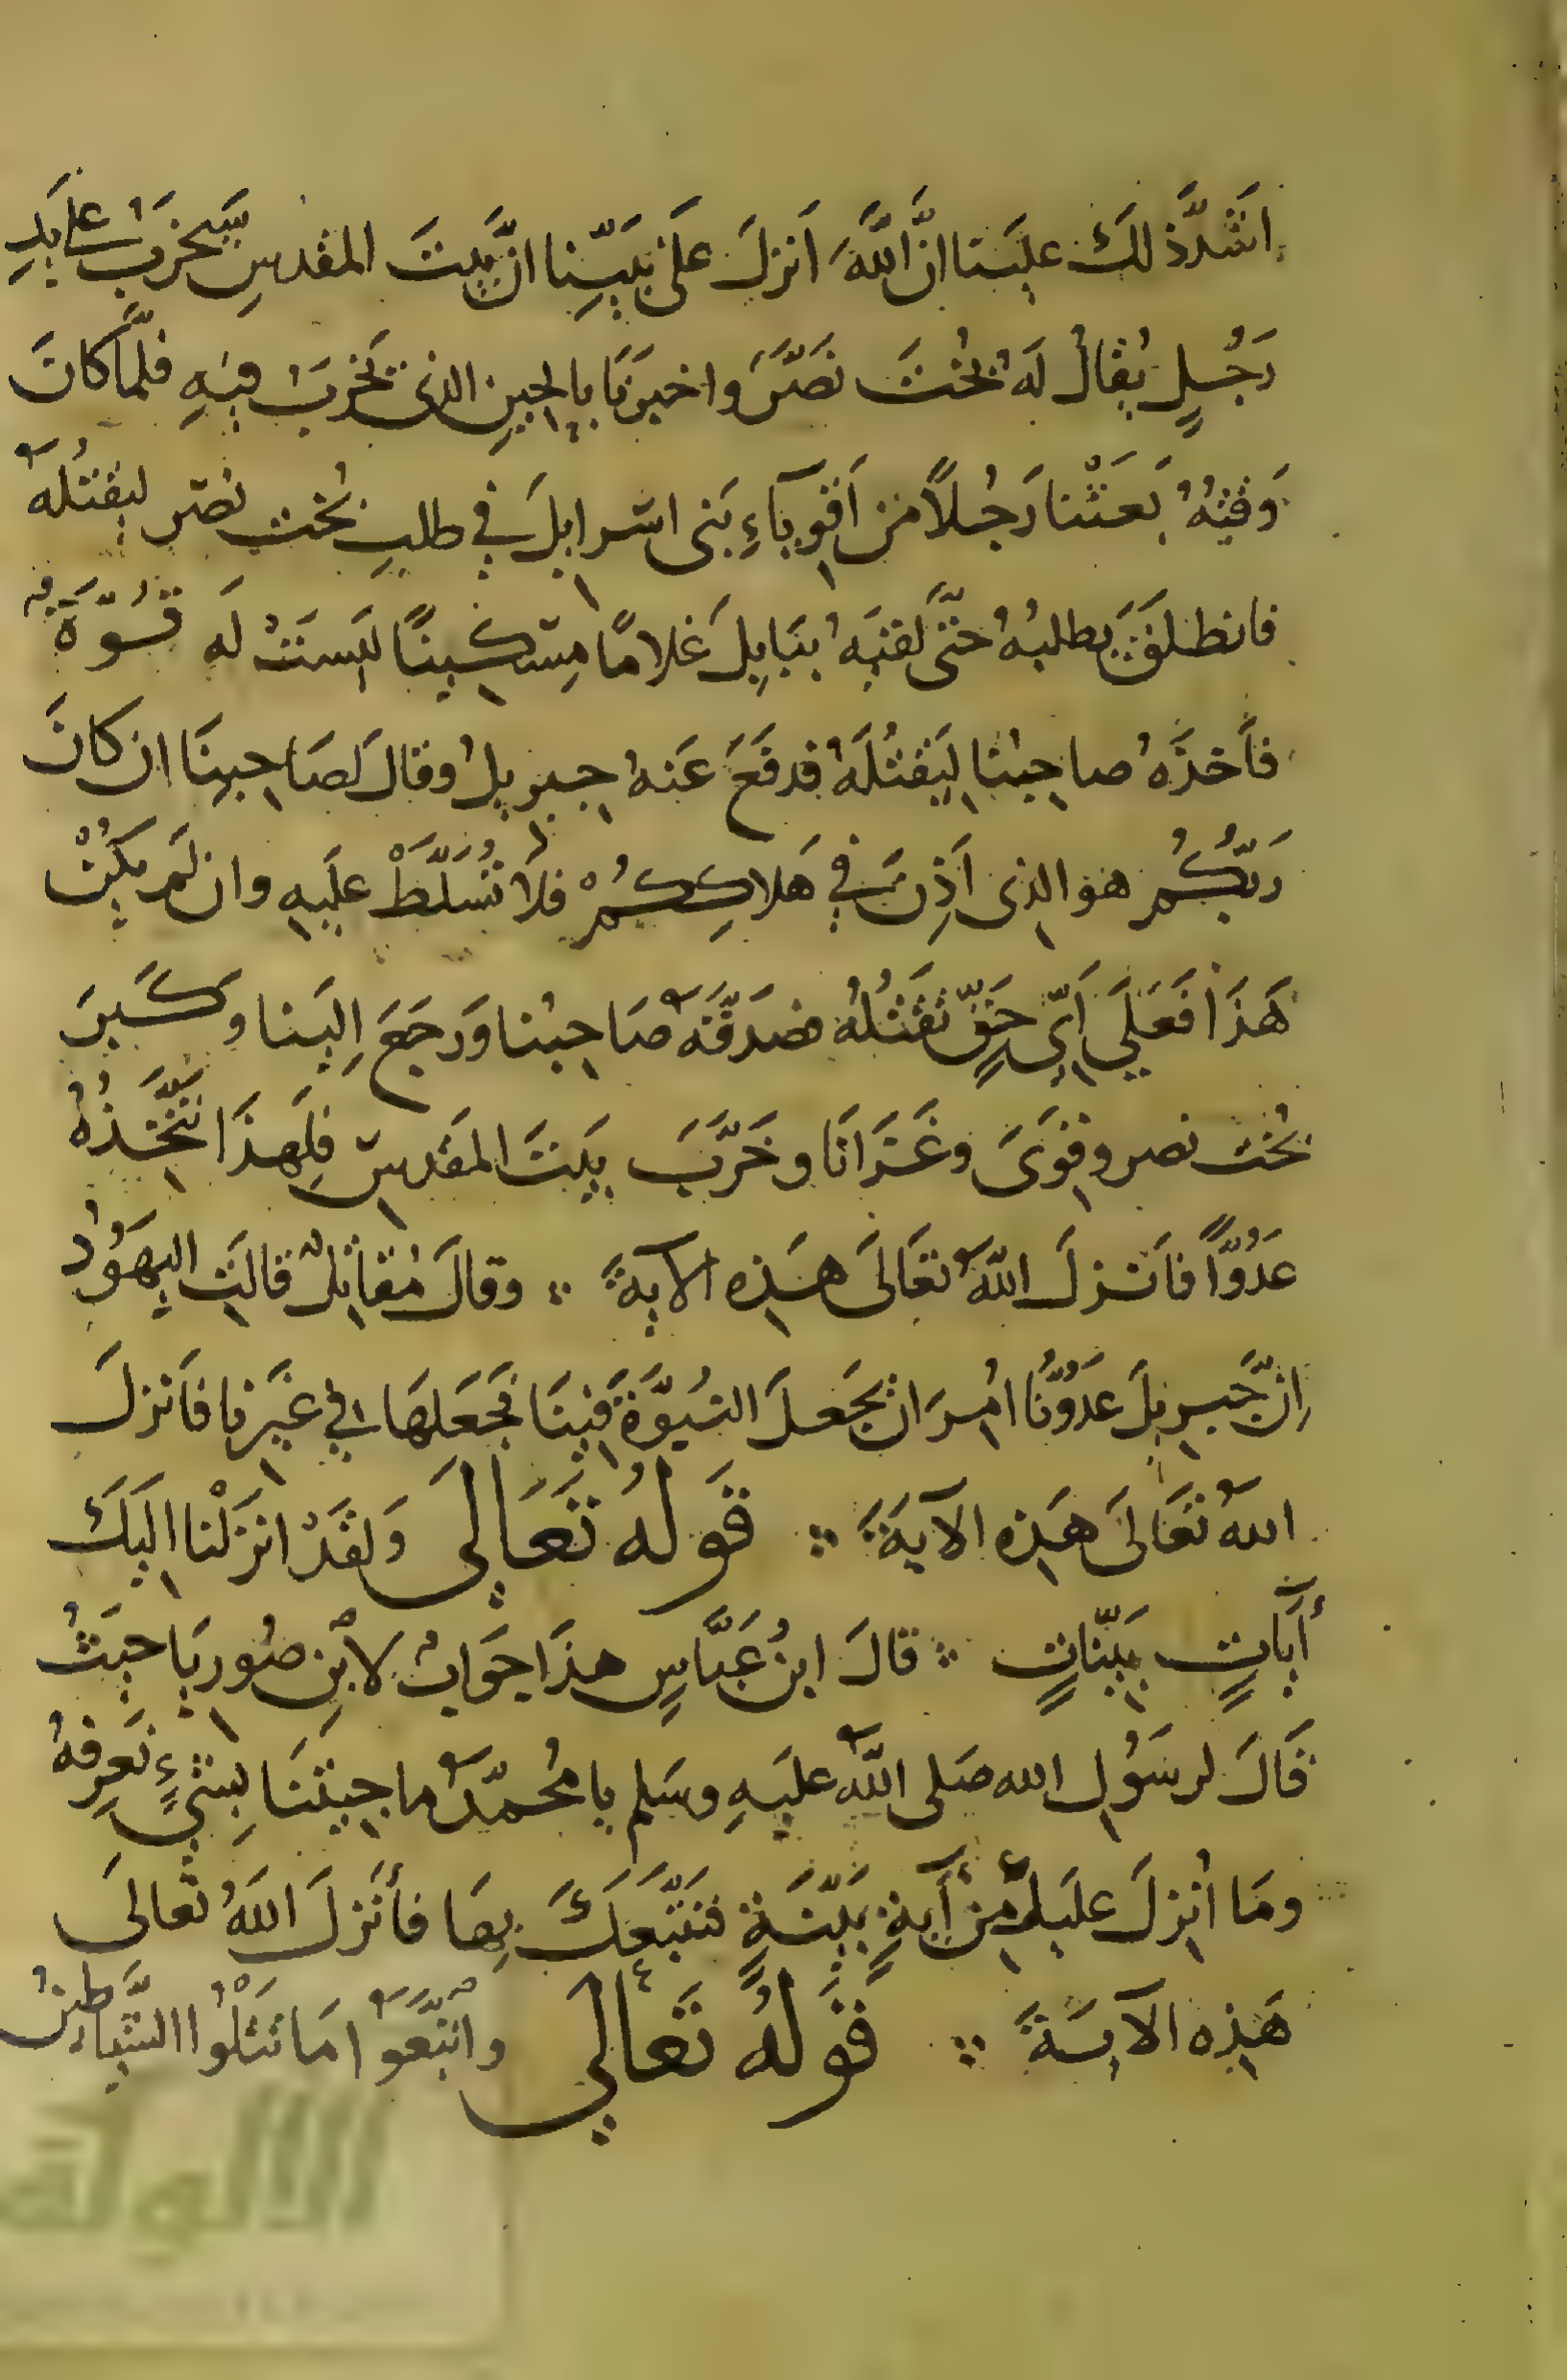 اشد ذلك علينا انّ اللّه أنزلَ على نَبيّنا انّ بيتَ المقدسِ سيخرب على يدِ
رَجُلٍ يُقالُ لَهُ بُخْتَ نَصَّرَ واخبرَنَا بالحينِ الذى يَخْرَبُ فيهِ فلمّا كانَ
وَقْتُهُ بَعَثْنا رَجُلاً من اَقْوِيآءِ بَنى اسْرايلَ في طلبِ بُخت نصّر ليقتُلهُ
فانطلَقَ يطلبُهُ حتَّى لقيَهُ ببَابِلَ غلامًا مِسْكِينًا لَيسَتْ لَه قُوَّةٌ
فأخذَهُ صاحِبُنا لِيَقتُلَهُ فدفَعَ عَنهُ جبريلُ وقالَ لصَاحِبِنَا ان كانَ
رَبُّكُم هو الذى اَذِنَ في هَلاكِكُمْ فلا تُسَلَّطْ علَيهِ وان لَم يكُنْ
هَذَا فعَلَي اَيِّ حَقٍّ تقتُلُه فصَدَّقَهُ صَاحِبُنا وَرجَعَ اِلَينا وكَبِرَ
بُخت نصر وقَوِىَ وغَزَانَا وخَرَّبَ بيتَ المَقدسِ فلِهذَا نتّخِذُهُ
عَدُوًّا فأنزلَ اللّهُ تعَالَى هَذِه الآيةَ ∴ وقالَ مُقاتِلٌ قالتِ اليهُودُ
اِنّ جَبرِيلَ عَدُوُّنا اُمِرَ ان يَجعَلَ النبُوَّةَ فِينَا فَجَعَلهَا في غَيرِنا فأنزلَ
اللّهُ تعَالَى هَذِه الآيةَ ∴ قَولهُ تَعَالى وَلَقَدْ انزَلْنا اليَكَ
أيَاتٍ بَيّنَاتٍ ∴ قالَ ابنُ عَبَّاسٍ هذَا جَوَابٌ لابْنِ صُوريَا حيثُ
قَالَ لرسُولِ الله صَلى اللّه علَيهِ وسَلم يا محُمّدُ ما جيتَنَا بِشيءٍ نَعرِفهُ
ومَا أنزِلَ علَيكَ مِن أيَةٍ بَيّنَةٍ فنَتّبعَكَ بِهَا فأنزلَ اللّهُ تعالىَ
هَذِه الآيَةَ ∴ قَولهُ تَعالى واتّبَعُوا مَا تَتْلُوا الشّيَاطينُ
الألوكة